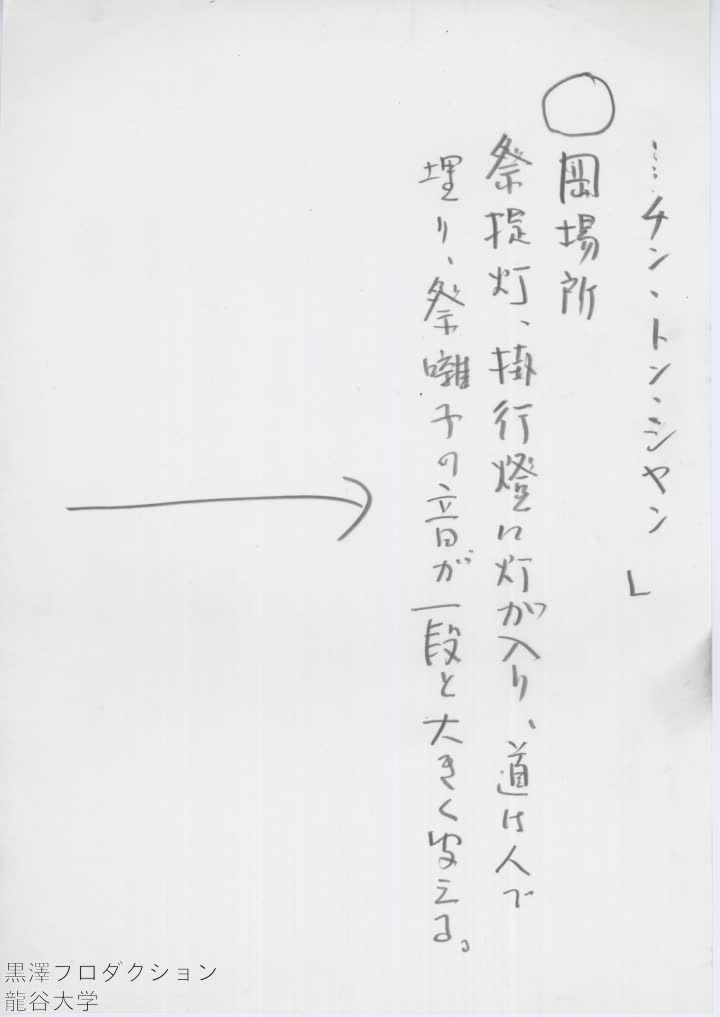 ……チン、トン、シャン」
○岡場所
祭提灯、掛行燈に灯が入り、道は人で
埋り、祭囃子の音が一段と大きく聞える。
黒澤プロダクション
龍谷大学